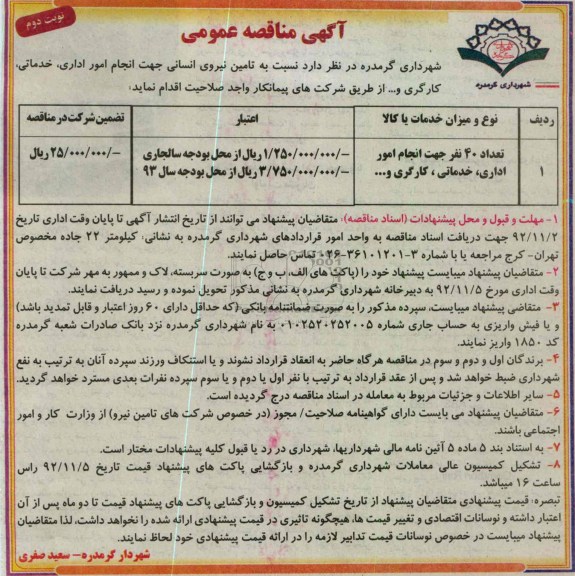 نوبت دوم
آگهی مناقصه عمومی
شهرداری گرمدره
شهرداری گرمدره در نظر دارد نسبت به تامین نیروی انسانی جهت انجام امور اداری، خدماتی،
کارگری و... از طریق شرکت های پیمانکار واجد صلاحیت اقدام نماید:
ردیف نوع و میزان خدمات یا کالا اعتبار تضمین شرکت در مناقصه
۱ تعداد ۴۰ نفر جهت انجام امور اداری، خدماتی ، کارگری و... ۱/۲۵۰/۰۰۰/۰۰۰/- ریال از محل بودجه سالجاری ۲۵/۰۰۰/۰۰۰/- ریال
۳/۷۵۰/۰۰۰/۰۰۰/- ریال از محل بودجه سال ۹۳
۱- مهلت و قبول و محل پیشنهادات (اسناد مناقصه): متقاضیان پیشنهاد می توانند از تاریخ انتشار آگهی تا پایان وقت اداری تاریخ
۹۲/۱۱/۲ جهت دریافت اسناد مناقصه به واحد امور قراردادهای شهرداری گرمدره به نشانی: کیلومتر ۲۲ جاده مخصوص
تهران- کرج مراجعه یا با شماره ۳-۳۶۱۰۱۲۰۱-۰۲۶ تماس حاصل نمایند.
۲- متقاضیان پیشنهاد میبایست پیشنهاد خود را (پاکت های الف، ب و ج) به صورت سربسته، لاک و ممهور به مهر شرکت تا پایان
وقت اداری مورخ ۹۲/۱۱/۵ به دبیرخانه شهرداری گرمدره به نشانی مذکور تحویل نموده و رسید دریافت نمایند.
۳- متقاضی پیشنهاد میبایست، سپرده مذکور را به صورت ضمانتنامه بانکی (که حداقل دارای ۶۰ روز اعتبار و قابل تمدید باشد)
و یا فیش واریزی به حساب جاری شماره ۰۱۰۲۵۲۰۲۵۲۰۰۵ به نام شهرداری گرمدره نزد بانک صادرات شعبه گرمدره
کد ۱۸۵۰ واریز نمایند.
۴- برندگان اول و دوم و سوم در مناقصه هرگاه حاضر به انعقاد قرارداد نشوند و یا استنکاف ورزند سپرده آنان به ترتیب به نفع
شهرداری ضبط خواهد شد و پس از عقد قرارداد به ترتیب با نفر اول یا دوم و یا سوم سپرده نفرات بعدی مسترد خواهد گردید.
۵- سایر اطلاعات و جزئیات مربوط به معامله در اسناد مناقصه درج گردیده است.
۶- متقاضیان پیشنهاد می بایست دارای گواهینامه صلاحیت/ مجوز (در خصوص شرکت های تامین نیرو) از وزارت کار و امور
اجتماعی باشند.
۷- به استناد بند ۵ ماده ۵ آئین نامه مالی شهرداریها، شهرداری در رد یا قبول کلیه پیشنهادات مختار است.
۸- تشکیل کمیسیون عالی معاملات شهرداری گرمدره و بازگشایی پاکت های پیشنهاد قیمت تاریخ ۹۲/۱۱/۵ راس
ساعت ۱۶ میباشد.
تبصره: قیمت پیشنهادی متقاضیان پیشنهاد از تاریخ تشکیل کمیسیون و بازگشایی پاکت های پیشنهاد قیمت تا دو ماه پس از آن
اعتبار داشته و نوسانات اقتصادی و تغییر قیمت ها، هیچگونه تاثیری در قیمت پیشنهادی ارائه شده را نخواهد داشت، لذا متقاضیان
پیشنهاد میبایست در خصوص نوسانات قیمت تدابیر لازمه را در ارائه قیمت پیشنهادی خود لحاظ نمایند.
شهردار گرمدره- سعید صفری